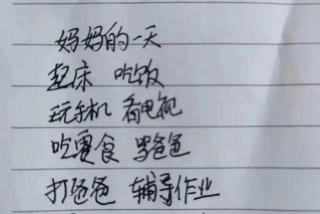 妈妈的一天
起床 吃饭
玩手机 看电视
吃零食 骂爸爸
打爸爸 辅导作业